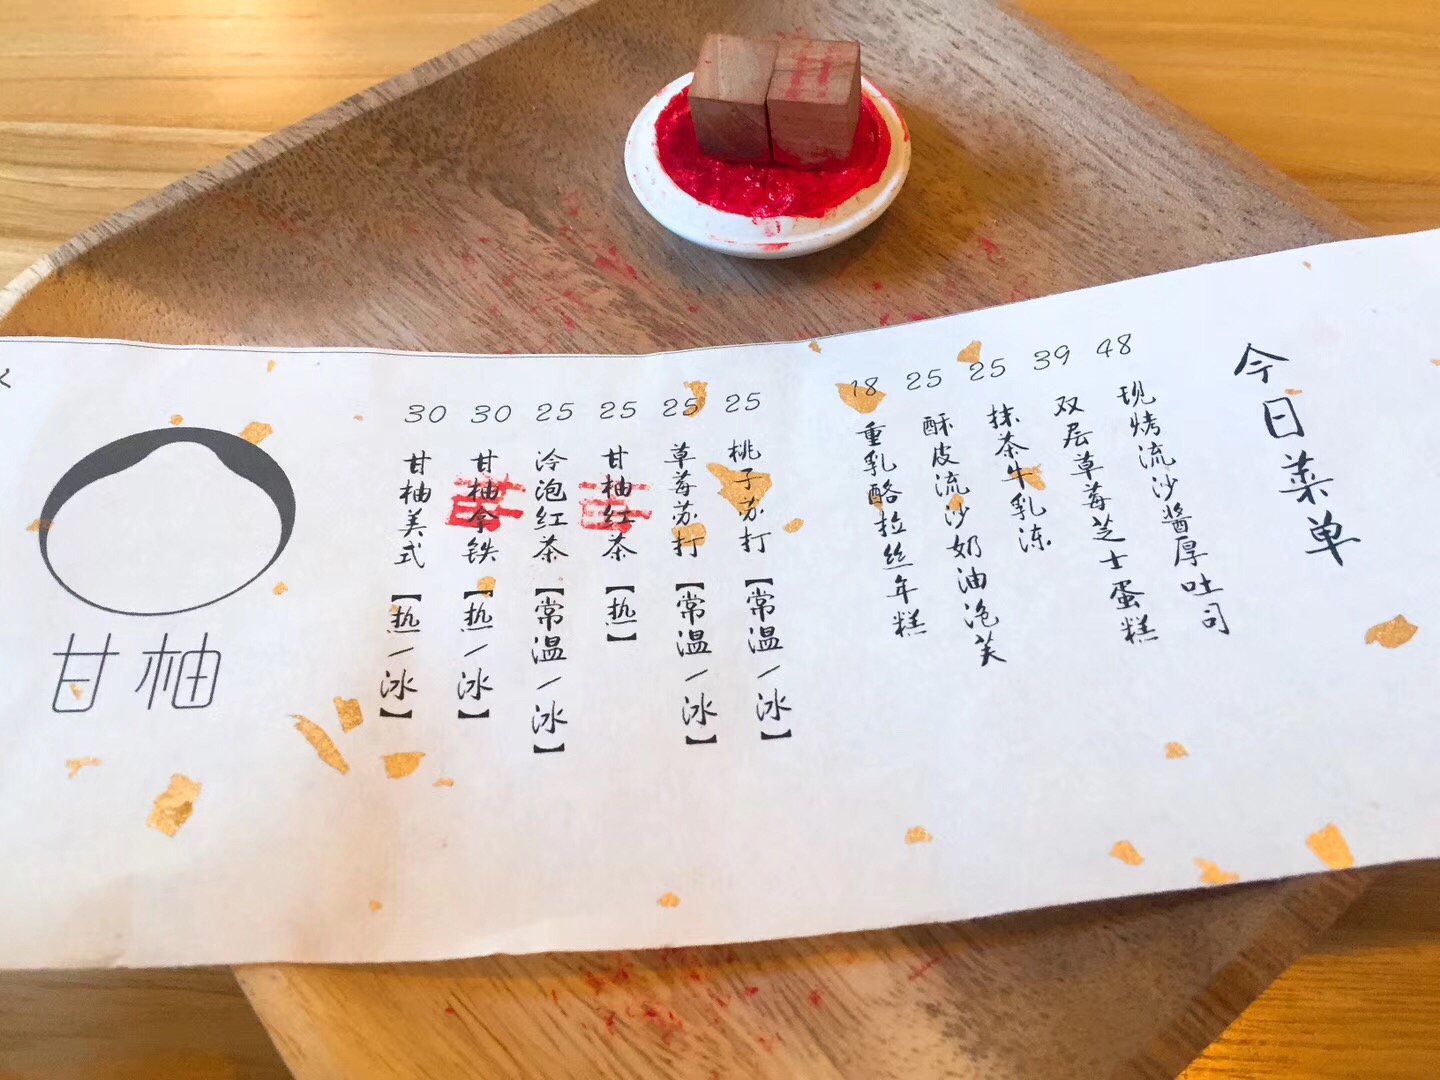 今日菜单
48 现烤流沙酱厚吐司
39 双层草莓芝士蛋糕
25 抹茶牛乳冻
25 酥皮流沙奶油泡芙
18 重乳酪拉丝年糕
25 桃子苏打【常温/冰】
25 草莓苏打【常温/冰】
25 甘柚红茶【热】
25 冷泡红茶【常温/冰】
30 甘柚拿铁【热/冰】
30 甘柚美式【热/冰】
甘柚